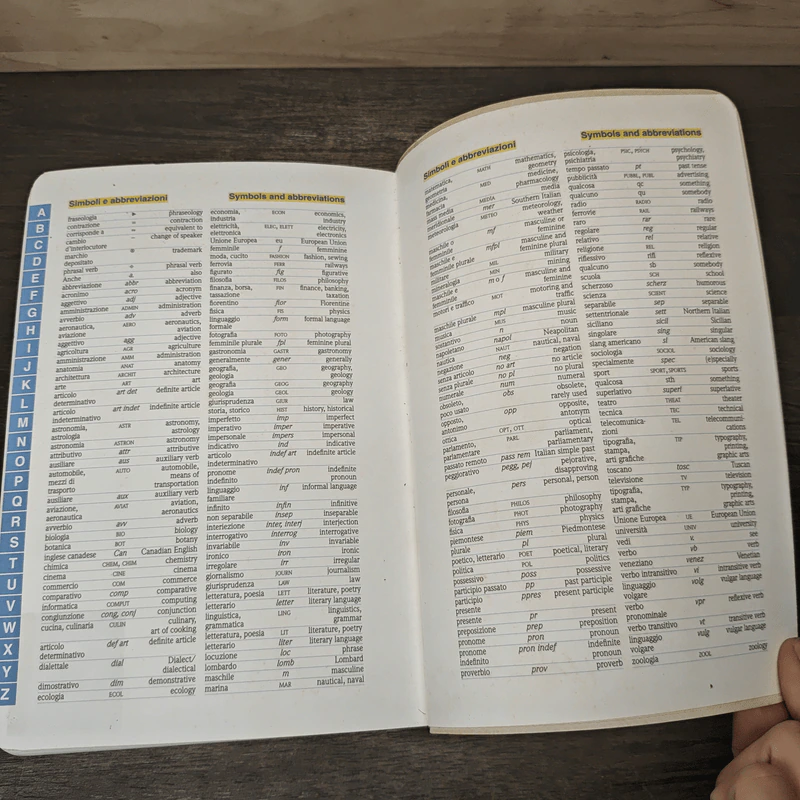 Simboli e abbreviazioni
Symbols and abbreviations
A
B
C
D
E
F
G
H
I
J
K
L
M
N
O
P
Q
R
S
T
U
V
W
X
Y
Z
fraseologia phraseology
contrazione contraction
corresponde a = equivalent to
cambio – change of speaker
d'interlocutore
marchio ® trademark
depositato
phrasal verb phrasal verb
Anche also
abbreviazione abbr abbreviation
acronimo acro acronym
aggettivo adj adjective
amministrazione ADMIN administration
avverbio adv adverb
aeronautica, AERO aeronautics,
aviazione aviation
aggettivo agg adjective
agricoltura AGR agriculture
amministrazione AMM administration
anatomia ANAT anatomy
architettura ARCHIT architecture
arte ART art
articolo art def definite article
determinativo
articolo art indef indefinite article
indeterminativo
astronomia, ASTR astronomy,
astrologia astrology
astronomia ASTRON astronomy
attributivo attr attributive
ausiliare aus auxiliary verb
automobile, AUTO automobile,
mezzi di means of
trasporto transportation
ausiliare aux auxiliary verb
aviazione, AVIAT aviation,
aeronautica aeronautics
avverbio avv adverb
biologia BIO biology
botanica BOT botany
inglese canadese Can Canadian English
chimica CHEM, CHIM chemistry
cinema CINE cinema
commercio COM commerce
comparativo comp comparative
informatica COMPUT computing
congiunzione cong, conj conjunction
cucina, culinaria CULIN culinary,
art of cooking
articolo def art definite article
determinativo
dialettale dial Dialect/
dialectical
dimostrativo dim demonstrative
ecologia ECOL ecology
economia, ECON economics,
industria industry
elettricità, ELEC, ELETT electricity,
elettronica electronics
Unione Europea eu European Union
femminile f femminine
moda, cucito FASHION fashion, sewing
ferrovia FERR railways
figurato fig figurative
filosofia FILOS philosophy
finanza, borsa, FIN finance, banking,
tassazione taxation
fiorentino fior Florentine
fisica FIS physics
linguaggio form formal language
formale
fotografia FOTO photography
femminile plurale fpl feminine plural
gastronomia GASTR gastronomy
generalmente gener generally
geografia, GEO geography,
geologia geology
geografia GEOG geography
geologia GEOL geology
giurisprudenza GIUR law
storia, storico HIST history, historical
imperfetto imp imperfect
imperativo imper imperative
impersonale impers impersonal
indicativo ind indicative
articolo indef art indefinite article
indeterminativo
pronome indef pron indefinite
indefinito pronoun
linguaggio inf informal language
familiare
infinito infin infinitive
non separabile insep inseparable
interiezione inter, interj interjection
interrogativo interrog interrogative
invariabile inv invariable
ironico iron ironic
irregolare irr irregular
giornalismo JOURN journalism
giurisprudenza LAW law
letteratura, poesia LETT literature, poetry
letterario letter literary language
linguistica, LING linguistics,
grammatica grammar
letteratura, poesia LIT literature, poetry
letterario liter literary language
locuzione loc phrase
lombardo lomb Lombard
maschile m masculine
marina MAR nautical, naval
Simboli e abbreviazioni
Symbols and abbreviations
matematica, MATH mathematics,
geometria geometry
medicina, MED medicine,
farmacia pharmacology
mass media MEDIA media
meridionale mer Southern Italian
meteorologia METEO weather
maschile o mf masculine or
femminile feminine
maschile e mfpl masculine and
femminile plurale feminine plural
militare MIL military
mineralogia MIN mining
maschile e m o f masculine and
femminile feminine
motori e traffico MOT motoring and
traffic
maschile plurale mpl masculine plural
musica MUS music
sostantivo n noun
napoletano napol Neapolitan
nautica NAUT nautical, naval
negativo neg negation
senza articolo no art no article
senza plurale no pl no plural
numerale num numeral
obsoleto, obs obsolete,
poco usato rarely used
opposto, opp opposite,
antonimo antonym
ottica OPT, OTT optical
parlamento, PARL parliament,
parlamentare parliamentary
passato remoto pass rem Italian simple past
peggiorativo pegg, pej pejorative,
disapproving
personale, pers personal, person
persona
filosofia PHILOS philosophy
fotografia PHOT photography
fisica PHYS physics
piemontese piem Piedmontese
plurale pl plural
poetico, letterario POET poetical, literary
politica POL politics
possessivo poss possessive
participio passato pp past participle
participio ppres present participle
presente
presente pr present
preposizione prep preposition
pronome pron pronoun
pronome pron indef indefinite
indefinito pronoun
proverbio prov proverb
psicologia, PSIC, PSYCH psychology,
psichiatria psychiatry
tempo passato pt past tense
pubblicità PUBBL, PUBL advertising
qualcosa qc something
qualcuno qu somebody
radio RADIO radio
ferrovie RAIL railways
raro rar rare
regolare reg regular
relativo rel relative
religione REL religion
riflessivo rifl reflexive
qualcuno sb somebody
scuola SCH school
scherzoso scherz humorous
scienza SCIENT science
separabile sep separable
settentrionale sett Northern Italian
siciliano sicil Sicilian
singolare sing singular
slang americano sl American slang
sociologia SOCIOL sociology
specialmente spec (e)specially
sport SPORT, SPORTS sports
qualcosa sth something
superlativo superl superlative
teatro THEAT theater
tecnica TEC technical
telecomunica- TEL telecommuni-
zioni cations
tipografia, TIP typography,
stampa, printing,
arti grafiche graphic arts
toscano tosc Tuscan
televisione TV television
tipografia, TYP typography,
stampa, printing,
arti grafiche graphic arts
Unione Europea UE European Union
università UNIV university
vedi v. see
verbo vb verb
veneziano venez Venetian
verbo intransitivo vi intransitive verb
linguaggio volg vulgar language
volgare
verbo vpr reflexive verb
pronominale
verbo transitivo vt transitive verb
linguaggio vulg vulgar language
volgare
zoologia ZOOL zoology